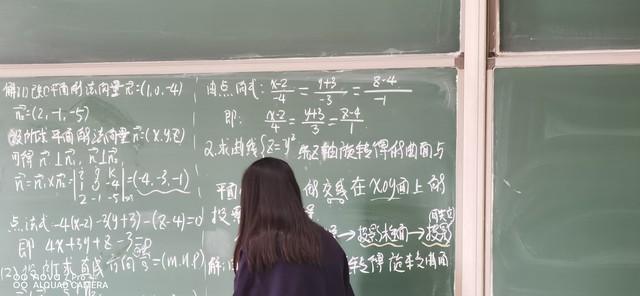 解:(1)设平面的法向量n₁=(1,0,-4)
n₂=(2,-1,-5)
设所求平面的法向量n=(x,y,z)
可得 n⊥n₁, n⊥n₂
n=n₁×n₂=| i j k 1 0 -4 2 -1 -5 |=(-4,-3,-1)
点法式 -4(x-2)-3(y+3)-(z-4)=0
即 4x+3y+z-3=0
(2)设所求直线方向 s=(m,n,p)
由点向式: (x-2)/-4 = (y+3)/-3 = (z-4)/-1
即: (x-2)/4 = (y+3)/3 = (z-4)/1
2.求曲线{z=y² 绕z轴旋转得的曲面与
平面 的交线在xoy面上的
投
→投影柱面→投影
解: 转得旋转曲面
NOVA 2
AI QUAD CAMERA